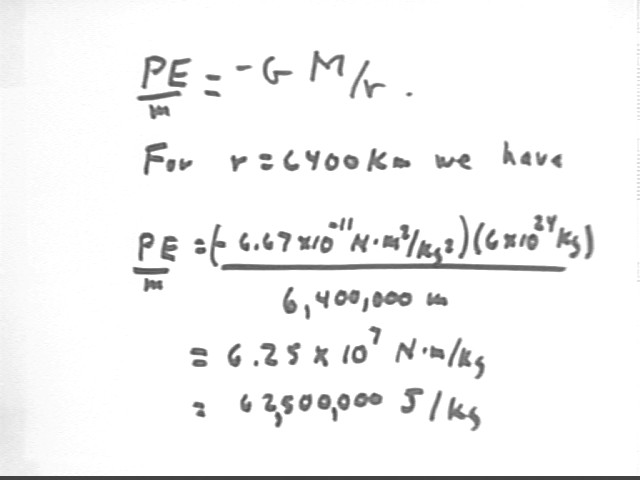 PE/m = -G M/r.
For r = 6400 Km we have
PE/m = (- 6.67 x 10^-11 N·m²/kg²)(6 x 10^24 kg) / 6,400,000 m
= 6.25 x 10^7 N·m/kg
= 62,500,000 J/kg